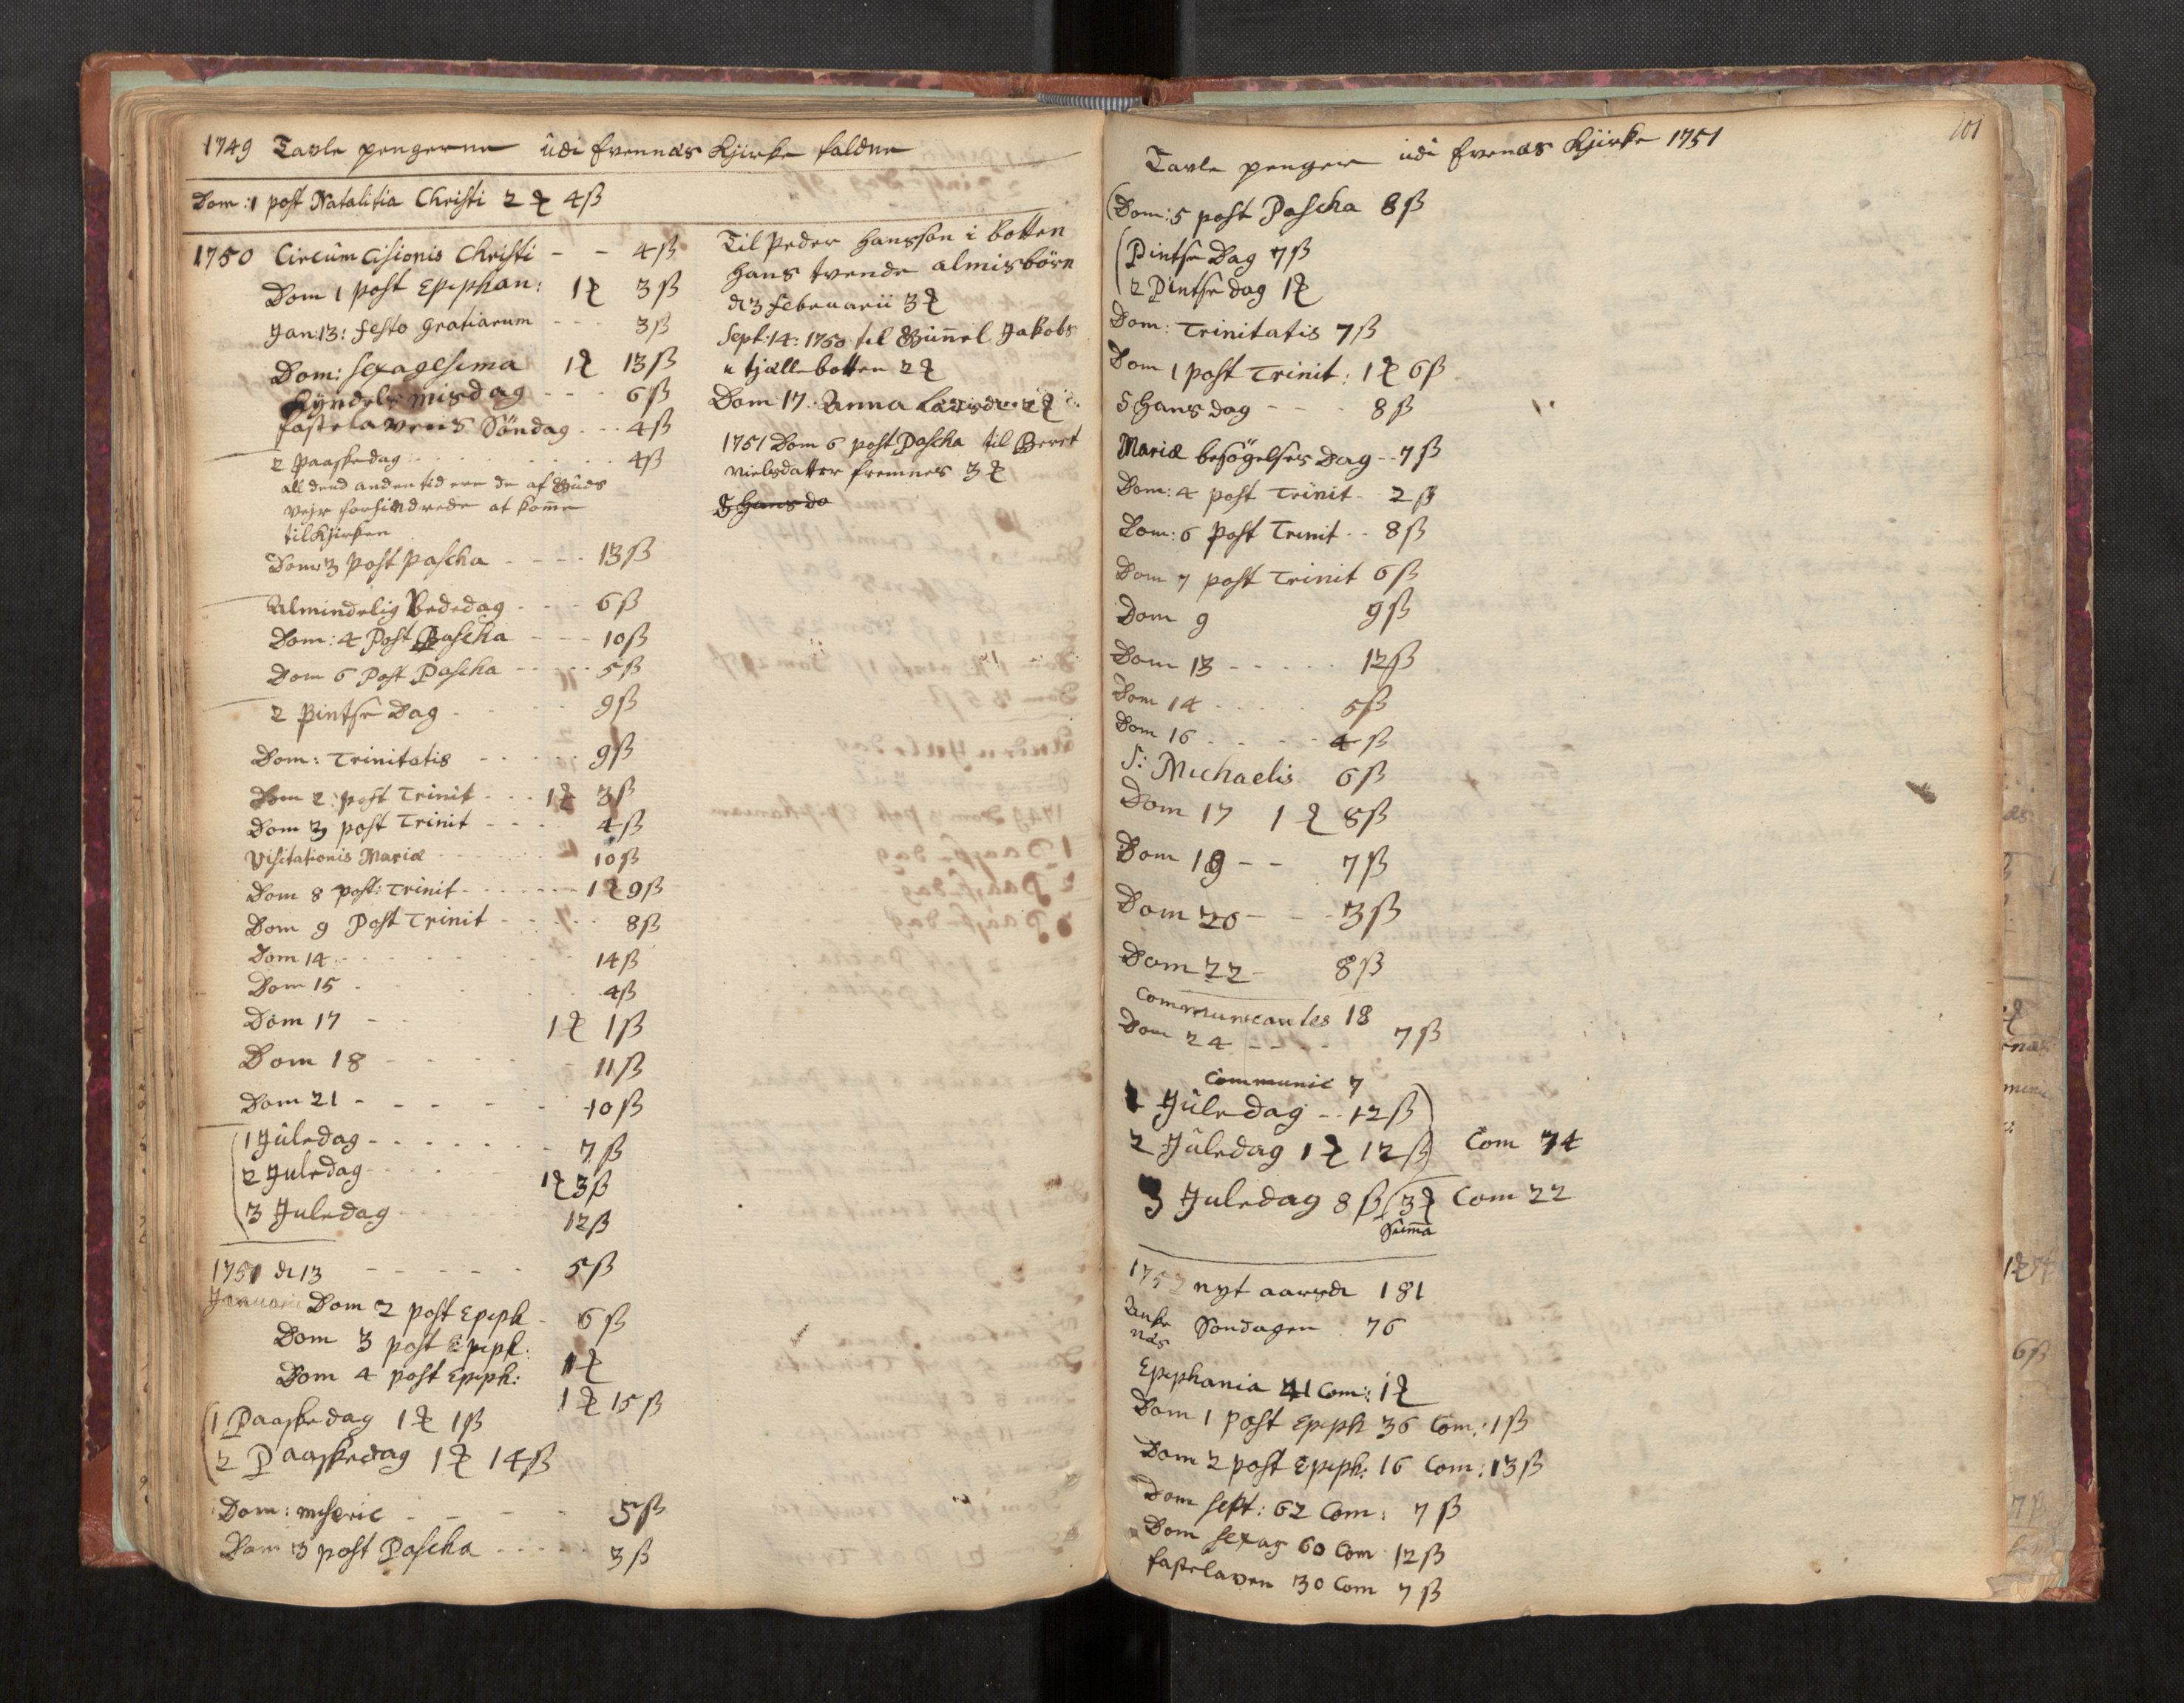 1749 Tavle pengerne udi Evennæs Kjirke faldne
Dom: 1 post Natalitia Christi 2 ₰ 4 ß
1750 Circumcisionis Christi - - 4 ß
Dom 1 post Epiphan: 1 ₰ 3 ß
Jan: 13: festo gratiarum - - - 3 ß
Dom: Sexagesima 1 ₰ 13 ß
Kyndelsmisdag - - - 6 ß
fastelavens Söndag - - - 4 ß
2 Paaskedag - - - 4 ß
all dend anden tid ere de af Guds
vejr forhindrede at kom̄e
til Kjirken
Dom: 3 post pascha - - - - 13 ß
Almindelig Bededag - - - 6 ß
Dom: 4 Post Pascha - - - 10 ß
Dom 6 Post Pascha - - - - 5 ß
2 Pintse Dag - - - 9 ß
Dom: Trinitatis - - - - 9 ß
Dom 2: post Trinit - - - 1 ₰ 3 ß
Dom 3 post Trinit - - - 4 ß
Visitationis Mariæ - - - 10 ß
Dom 8 post: Trinit - - - - 1 ₰ 9 ß
Dom 9 Post Trinit - - - - 8 ß
Dom 14 - - - - 14 ß
Dom 15 - - - 4 ß
Dom 17 - - 1 ₰ 1 ß
Dom 18 - - - - 11 ß
Dom 21 - - - - - 10 ß
1 Juledag - - - - - 7 ß
2 Juledag - - - 1 ₰ 3 ß
3 Juledag - - - 12 ß
1751 d 13 - - - - - 5 ß
Januarii Dom 2 post Epiph - 6 ß
Dom 3 post Epiph:
Dom 4 post Epiph: 1 ₰
1 ₰ 15 ß
1 Paaskedag 1 ₰ 1 ß
2 Paaskedag 1 ₰ 14 ß
Dom: miseric - - - - 5 ß
Dom 3 post Pascha - - - - - 3 ß
Til Peder Hanssön i botten
hans tvende almisbörn
d 3 februarii 3 ₰
Sept: 14: 1750 til Gun̄el Jakobs
i tjællebotten 2 ₰
Dom 17 Anna
1751 Dom 6 post Pascha til Beret
Nielsdatter fremnes 3 ₰
S Hans da
101
Tavle penger udi Evenæs Kjirke 1751
Dom: 5 post Pascha 8 ß
Pintse Dag 7 ß
2 Pintse dag 1 ₰
Dom: Trinitatis 7 ß
Dom 1 post Trinit: 1 ₰ 6 ß
S Hans dag - - - 8 ß
Mariæ besögelses Dag - - 7 ß
Dom: 4 post Trinit - 2 ß
Dom: 6 post Trinit - - 8 ß
Dom 7 post Trinit 6 ß
Dom 9 9 ß
Dom 13 - - - - - 12 ß
Dom 14 - - - - 5 ß
Dom 16 - - - - 4 ß
S: Michaelis 6 ß
Dom 17 1 ₰ 8 ß
Dom 19 - - 7 ß
Dom 20 - - - 3 ß
Dom 22 - 8 ß
Communicantes 18
Dom 24 - - - - 7 ß
Communic 7
1 Juledag - - 12 ß
2 Juledag 1 ₰ 12 ß Com 74
3 Juledag 8 ß (3 ₰ Com 22
Sum̄a
1752 nyt aarsd 181
Söndagen 76
Epiphania 41 Com: 1 ₰
Dom 1 post Epiph 36 Com: 1 ß
Dom 2 post Epiph: 16 Com: 13 ß
Dom Sept: 62 Com: 7 ß
Dom Sexag 60 Com 12 ß
fastelaven 30 Com 7 ß